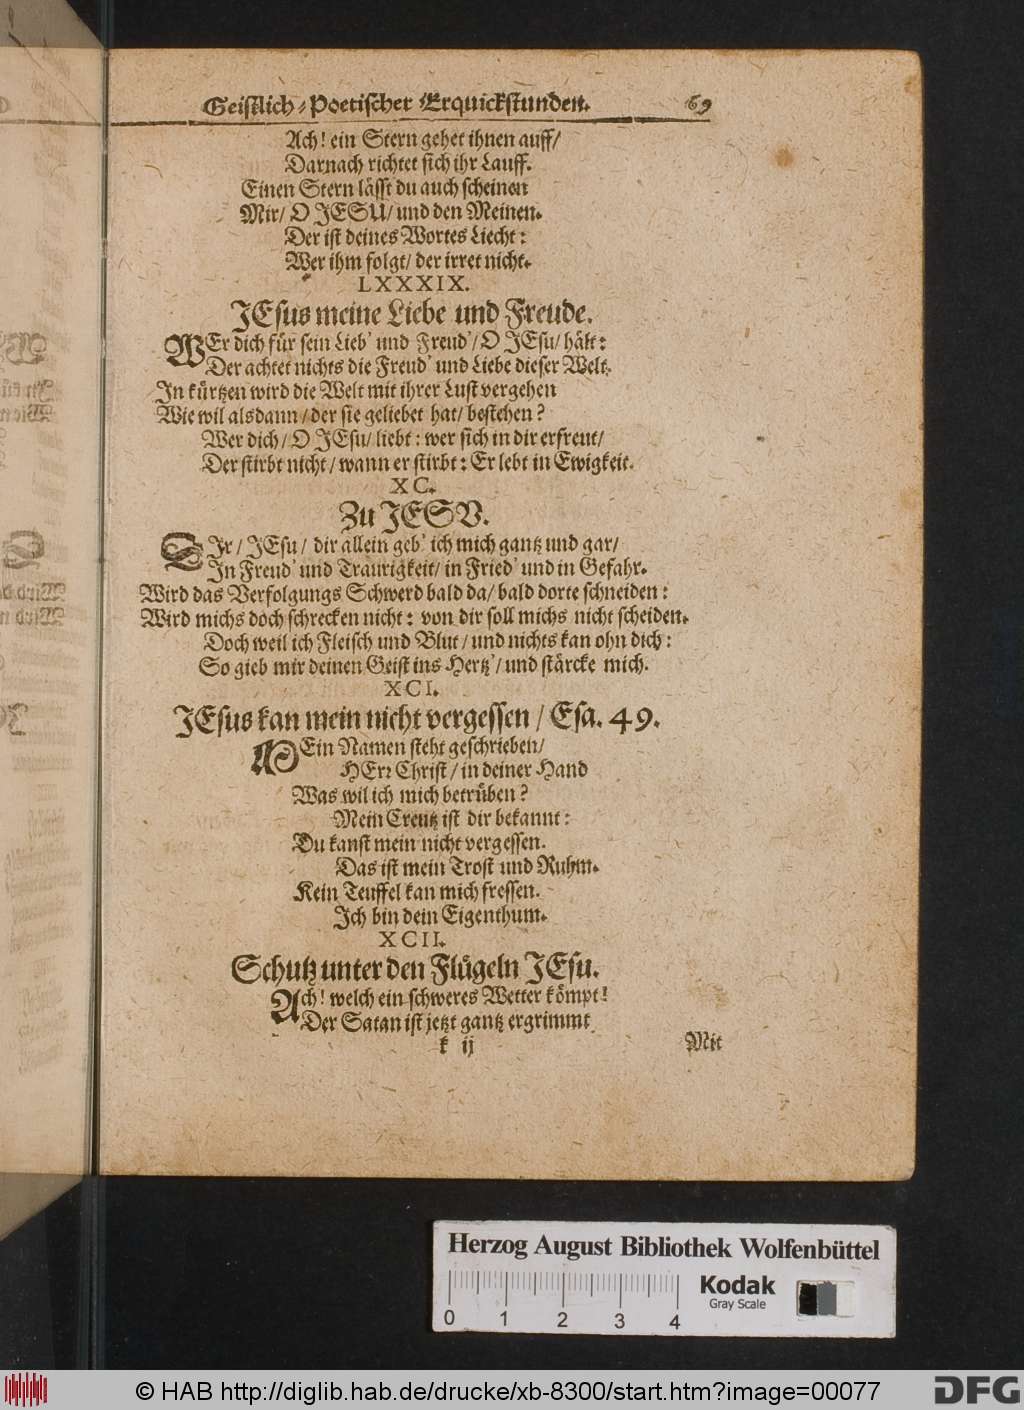 Geistlich-Poetischer Erquickstunden. 69
Ach! ein Stern gehet ihnen auff/
Darnach richtet sich ihr Lauff.
Einen Stern lässt du auch scheinen
Mir/ O JESU/ und den Meinen.
Der ist deines Wortes Liecht:
Wer ihm folgt/ der irret nicht.
LXXXIX.
JEsus meine Liebe und Freude.
WEr dich für sein Lieb' und Freud'/ O JEsu/ hält:
Der achtet nichts die Freud' und Liebe dieser Welt.
In kürtzen wird die Welt mit ihrer Lust vergehen
Wie wil alsdann/ der sie geliebet hat/ bestehen?
Wer dich/ O JEsu/ liebt: wer sich in dir erfreut/
Der stirbt nicht/ wann er stirbt: Er lebt in Ewigkeit.
XC.
Zu JESV.
DIr/ JEsu/ dir allein geb' ich mich gantz und gar/
In Freud' und Traurigkeit/ in Fried' und in Gefahr.
Wird das Verfolgungs Schwerd bald da/ bald dorte schneiden:
Wird michs doch schrecken nicht: von dir soll michs nicht scheiden.
Doch weil ich Fleisch und Blut/ und nichts kan ohn dich:
So gieb mir deinen Geist ins Hertz'/ und stärcke mich.
XCI.
JEsus kan mein nicht vergessen/ Esa. 49.
MEin Namen steht geschrieben/
HErr Christ/ in deiner Hand
Was wil ich mich betrüben?
Mein Creutz ist dir bekannt:
Du kanst mein nicht vergessen.
Das ist mein Trost und Ruhm.
Kein Teuffel kan mich fressen.
Ich bin dein Eigenthum.
XCII.
Schutz unter den Flügeln JEsu.
Ach! welch ein schweres Wetter kömpt!
Der Satan ist jetzt gantz ergrimmt
k ij Mit
Herzog August Bibliothek Wolfenbüttel
Kodak
Gray Scale
0 1 2 3 4
© HAB http://diglib.hab.de/drucke/xb-8300/start.htm?image=00077
DFG